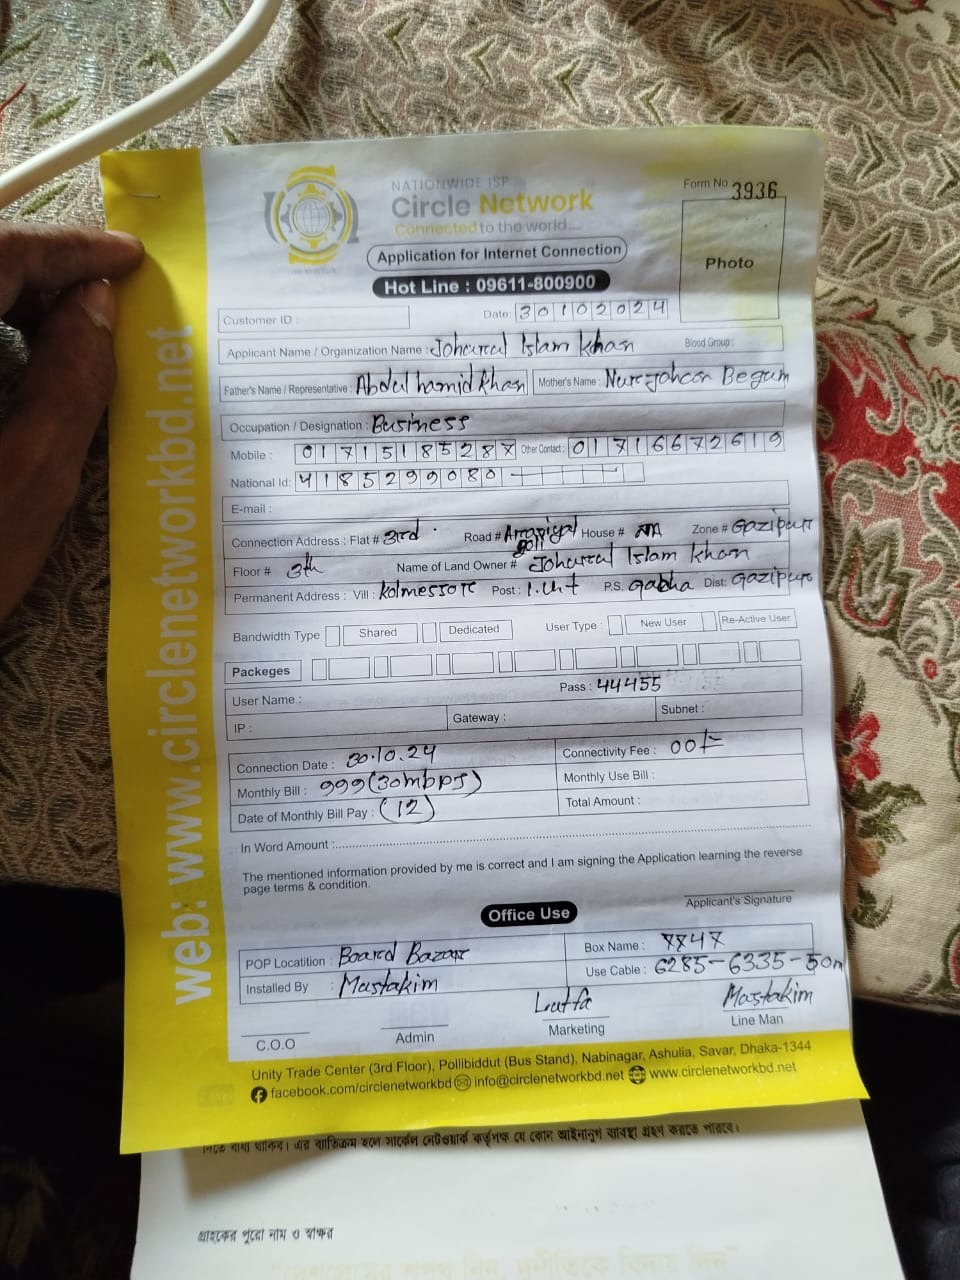 NATIONWIDE ISP
Circle Network
Connected to the world....
Form No 3936
Photo
Application for Internet Connection
Hot Line : 09611-800900
Customer ID :
Date: 30102024
Applicant Name / Organization Name : Johurul Islam khan Blood Group :
Father's Name / Representative : Abdul hamid khan Mother's Name : Begum
Occupation / Designation : Business
Mobile : 01715185287 Other Contact : 01716672619
National Id: 4185299080
E-mail :
Connection Address : Flat # 3rd Road # House # Zone # Gazipur
Floor # 3th Name of Land Owner # Johurul Islam khan
Permanent Address : Vill : kolmessore Post : P.S. gacha Dist: Gazipur
Bandwidth Type Shared Dedicated User Type : New User Re-Active User
Packeges
User Name : Pass : 44455
IP : Gateway : Subnet :
Connection Date : 30.10.24 Connectivity Fee : 00/-
Monthly Bill : 999 (30mbps) Monthly Use Bill :
Date of Monthly Bill Pay : (12) Total Amount :
In Word Amount :
The mentioned information provided by me is correct and I am signing the Application learning the reverse
page terms & condition.
Applicant's Signature
Office Use
POP Locatition : Board Bazar Box Name : 7847
Installed By : Mastakim Use Cable : 6285-6335-50m
Lutfa Mastakim
C.O.O Admin Marketing Line Man
Unity Trade Center (3rd Floor), Pollibiddut (Bus Stand), Nabinagar, Ashulia, Savar, Dhaka-1344
facebook.com/circlenetworkbd info@circlenetworkbd.net www.circlenetworkbd.net
web: www.circlenetworkbd.net
দিতে বাধ্য থাকিব। এর ব্যতিক্রম হলে সার্কেল নেটওয়ার্ক কর্তৃপক্ষ যে কোন আইনানুগ ব্যবস্থা গ্রহণ করতে পারবে।
গ্রাহকের পুরো নাম ও স্বাক্ষর